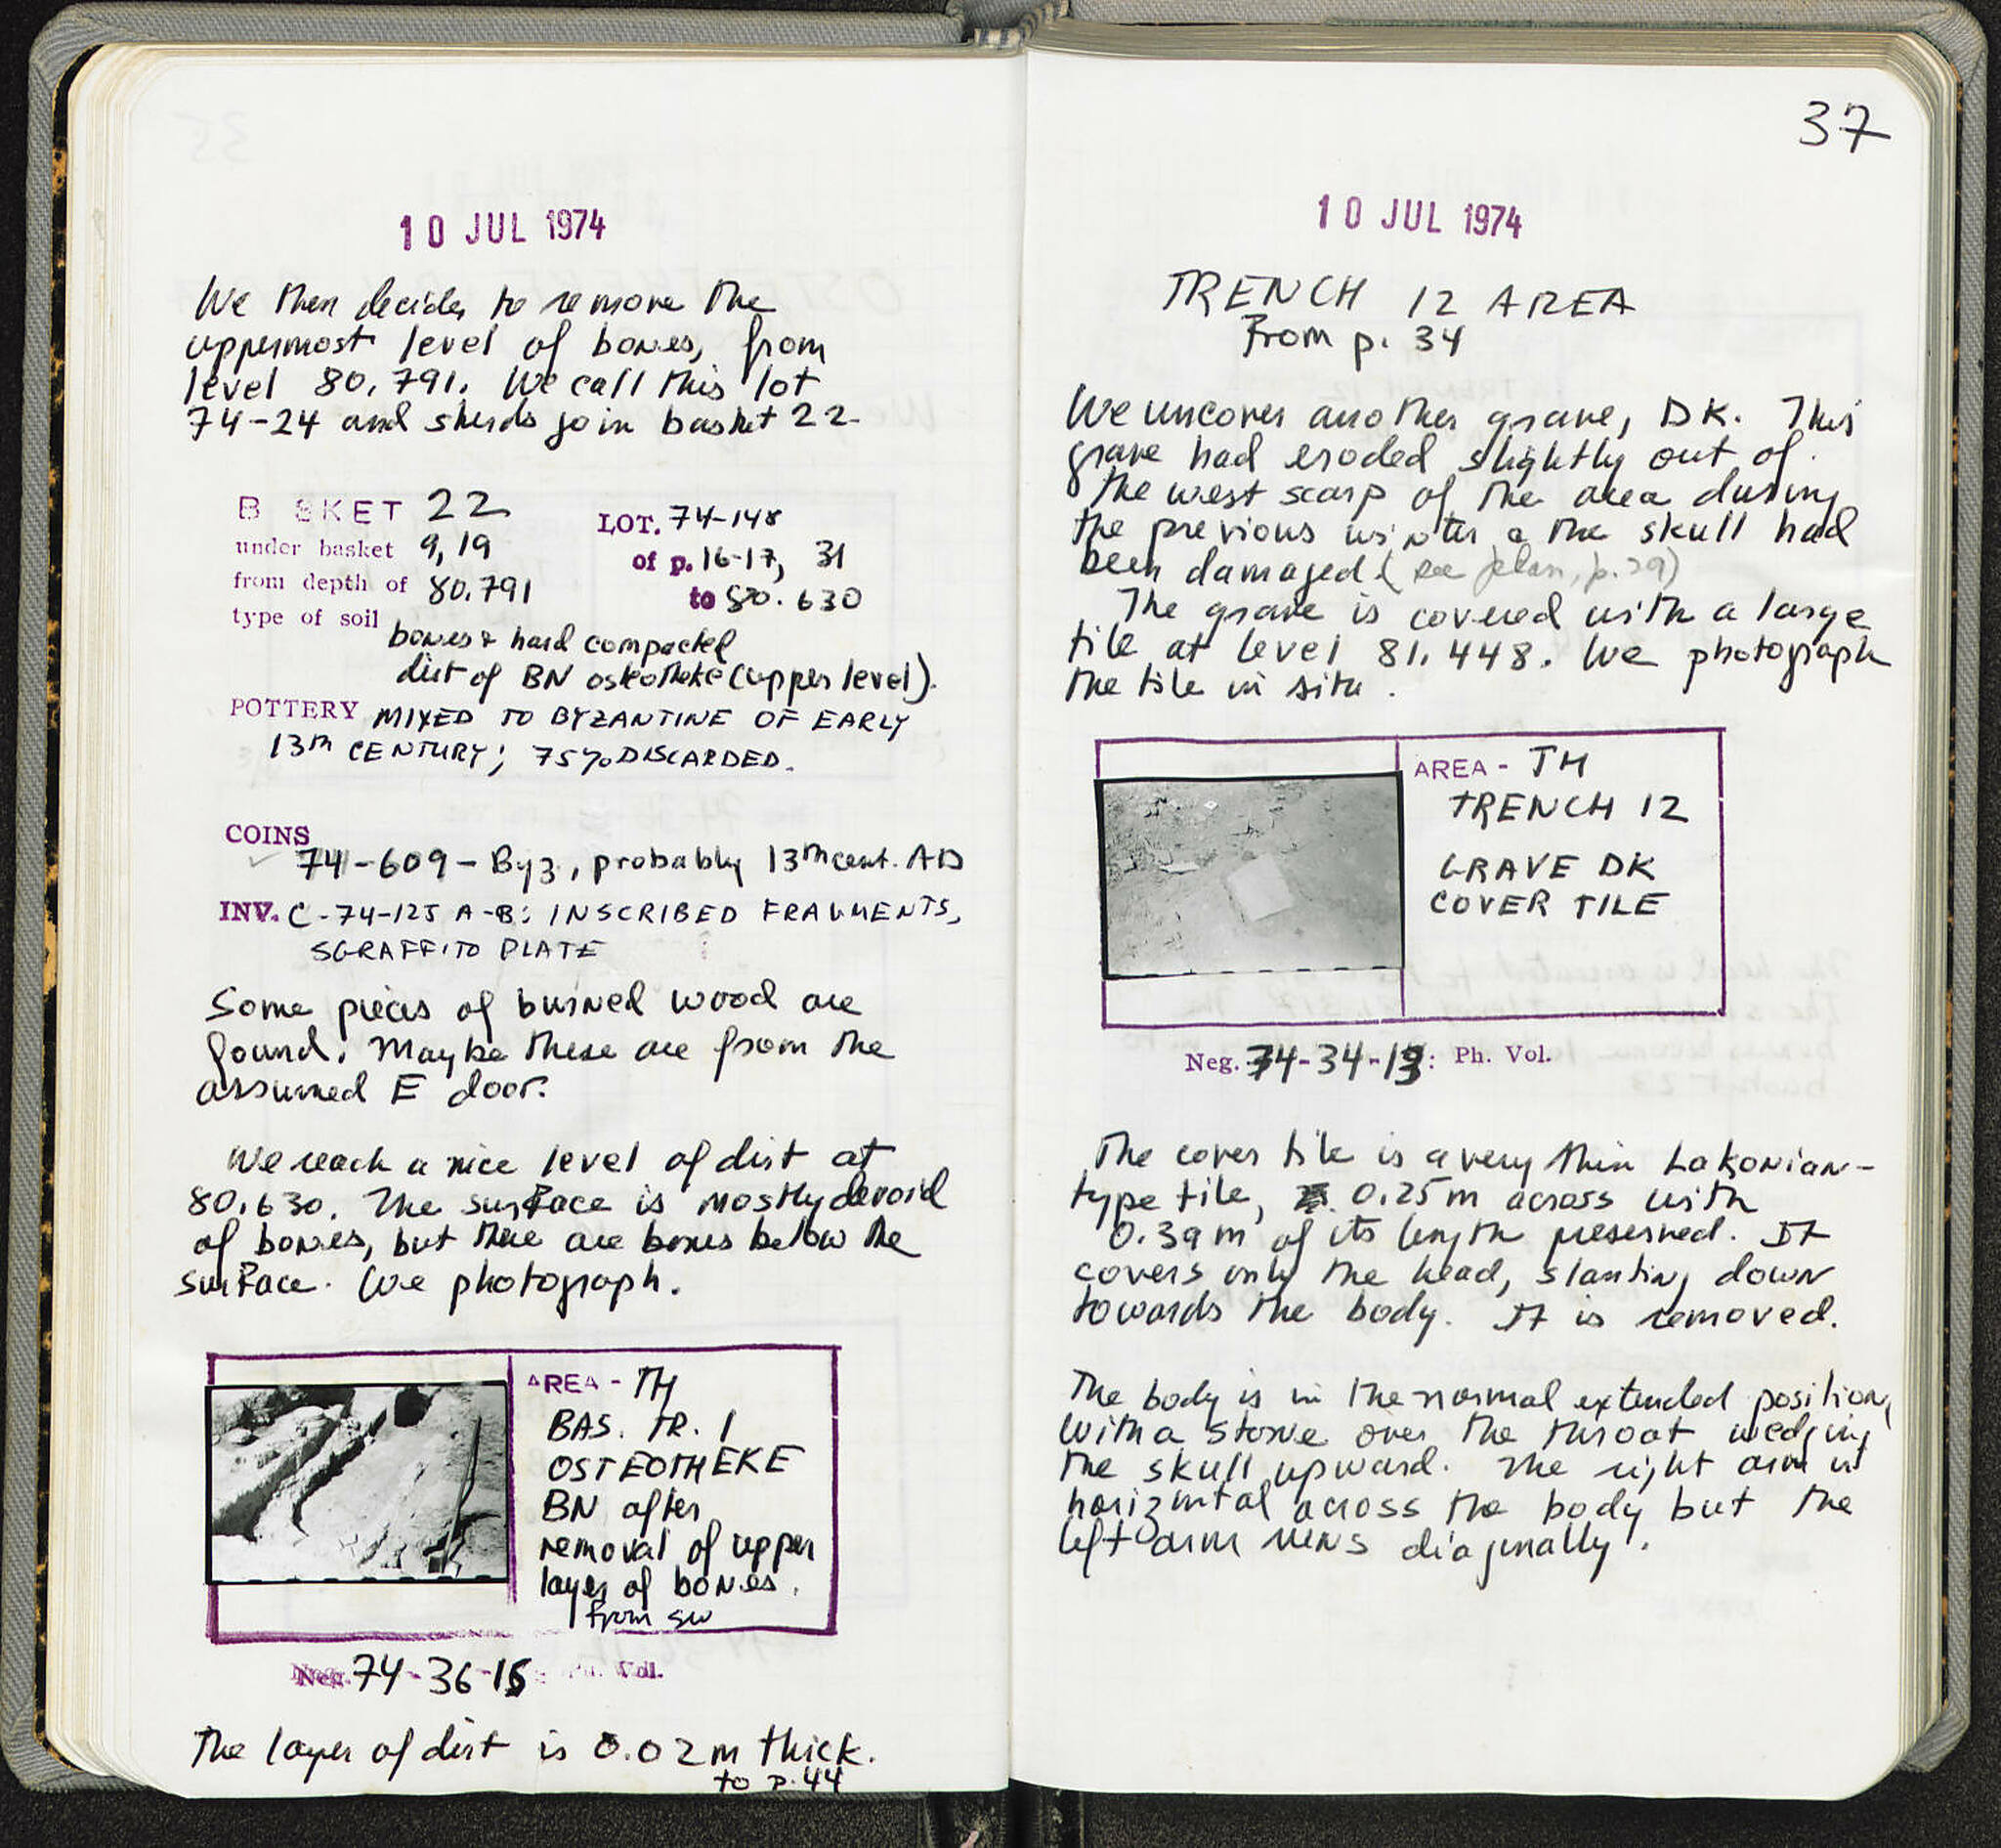 10 JUL 1974
We then decide to remove the
uppermost level of bones, from
level 80.791. We call this lot
74-24 and sherds join basket 22.
B SKET 22
LOT. 74-148
under basket 9, 19
of p. 16-17, 31
from depth of 80.791
to 80.630
type of soil
bones & hard compacted
dirt of BN osteotheke (upper level).
POTTERY MIXED TO BYZANTINE OF EARLY
13th CENTURY; 75% DISCARDED.
COINS
74-609 - Byz., probably 13th cent. AD
INV. C-74-125 A-B: INSCRIBED FRAGMENTS,
SGRAFFITO PLATE
Some pieces of burned wood are
found. Maybe these are from the
assumed E door.
We reach a nice level of dirt at
80.630. The surface is mostly devoid
of bones, but there are bones below the
surface. We photograph.
AREA - TH
BAS. TR. 1
OSTEOTHEKE
BN after
removal of upper
layer of bones.
from SW
Neg. 74-36-15: Ph. Vol.
The layer of dirt is 0.02m thick.
to p. 44
37
10 JUL 1974
TRENCH 12 AREA
From p. 34
We uncover another grave, DK. This
grave had eroded slightly out of
the west scarp of the area during
the previous winter & the skull had
been damaged. (see plan, p. 29)
The grave is covered with a large
tile at level 81.448. We photograph
the tile in situ.
AREA - TH
TRENCH 12
GRAVE DK
COVER TILE
Neg. 74-34-13: Ph. Vol.
The cover tile is a very thin Lakonian-
type tile, 0.25m across with
0.39m of its length preserved. It
covers only the head, slanting down
towards the body. It is removed.
The body is in the normal extended position,
with a stone over the throat wedging
the skull upward. The right arm is
horizontal across the body but the
left arm runs diagonally.